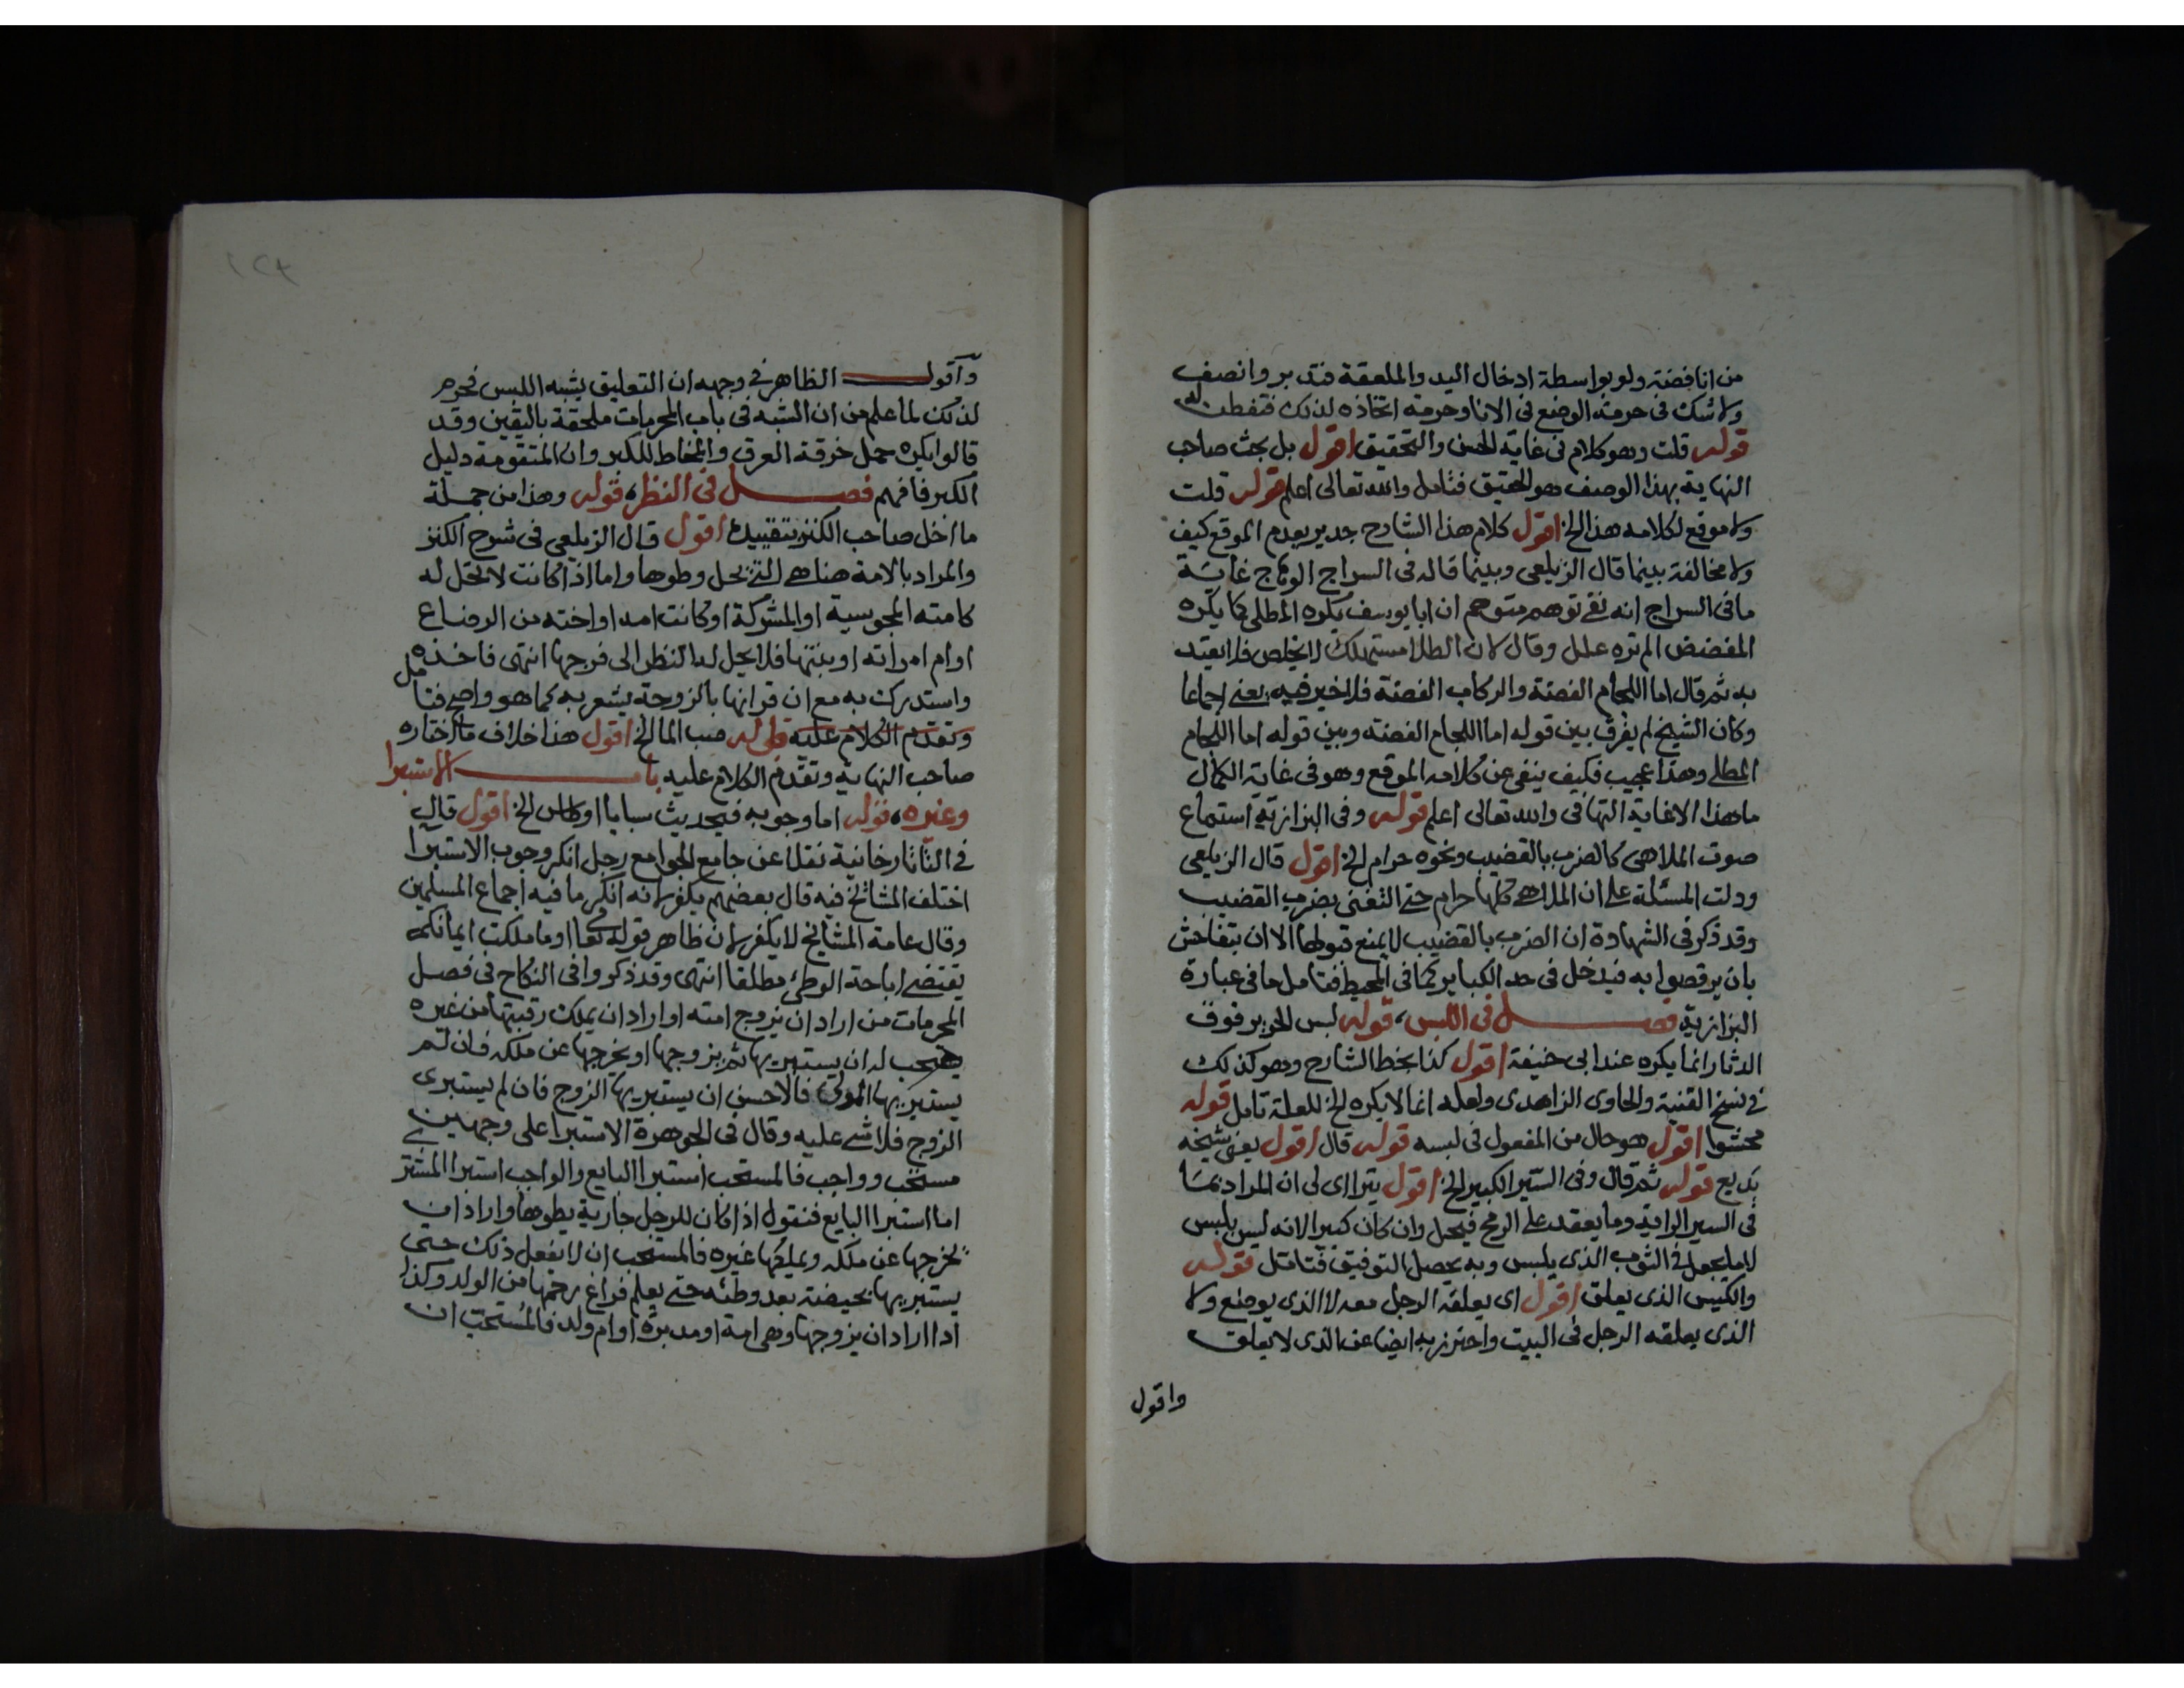 من انا فضة ولو بواسطة ادخال اليد والملعقة فتدبر وانصف
ولا شك فى حرمة الوضع فى الانا وحرمة اتخاذه لذلك فتفطن له
قوله قلت وهو كلام فى غاية الحسن والتحقيق اقول بل بحث صاحب
النهاية بهذا الوصف هو الحقيق فتامل والله تعالى اعلم قوله قلت
ولا موقع لكلامه هذا الخ اقول كلام هذا الشارح جدير بعدم الموقع كيف
ولا مخالفة بينما قال الزيلعى وبينما قاله فى السراج الوهاج غاية
ما فى السراج انه نفى توهم متوهم ان ابا يوسف يكره المطلى كما يكره
المفضض الم تره علل وقال لان الطلا مستهلك لا يخلص فلا يعتد
به ثم قال اما اللجام الفضة والركاب الفضة فلا خير فيه يعنى اجماعا
وكان الشيخ لم يفرق بين قوله اما اللجام الفضة وبين قوله اما اللجام
المطلى وهذا عجيب فكيف ينفى عن كلامه الموقع وهو فى غاية الكمال
ما هذا الا غاية التهافى والله تعالى اعلم قوله وفى البزازية استماع
صوت الملاهى كالضرب بالقضيب ونحوه حرام الخ اقول قال الزيلعى
ودلت المسئلة على ان الملاهى كلها حرام حتى التغنى بضرب القضيب
وقد ذكر فى الشهادة ان الضرب بالقضيب لا يمنع قبولها الا ان يتفاحش
بان يرقصوا به فيدخل فى حد الكباير كما فى المحيط فتامل ما فى عبارة
البزازية فصل فى اللبس، قوله لبس الحرير فوق
الدثار انما يكره عند ابى حنيفة اقول كذا بخط الشارح وهو كذلك
فى نسخ القنية والحاوى الزاهدى ولعله انما لا يكره الخ للعلة تامل قوله
محشوا اقول هو حال من المفعول فى لبسه قوله قال اقول يعنى شيخه
بديع قوله ثم قال وفى السير الكبير الخ اقول يتراى لى ان المراد بما
فى السير الراية وما يعقد على الرمح فيحل وان كان كبيرا لانه ليس بلبس
لا ما يجعل فى الثوب الذى يلبس وبه يحصل التوفيق فتامل قوله
والكيس الذى يعلق اقول اى يعلقه الرجل معه لا الذى يوضع ولا
الذى يعلقه الرجل فى البيت واحترز به ايضا عن الذى لا يعلق
واقول
واقول الظاهر فى وجهه ان التعليق يشبه اللبس فحرم
لذلك لما علم من ان الشبه فى باب المحرمات ملحقة باليقين وقد
قالوا يكره حمل خرقة العرق والمخاط للكبر وان المتقومة دليل
الكبر فافهم فصل فى النظر، قوله وهذا من جملة
ما اخل صاحب الكنز بتقييده اقول قال الزيلعى فى شرح الكنز
والمراد بالامة هنا هى التى يحل وطوها واما اذا كانت لا تحل له
كامته المجوسية او المشركة او كانت امه او اخته من الرضاع
او ام امراته او بنتها فلا يحل له النظر الى فرجها انتهى فاخذه
واستدرك به مع ان قرانها بالزوجة يشعر به كما هو واضح فتامل
وتقدم الكلام عليه قوله صب الما الخ اقول هذا خلاف ما اختاره
صاحب النهاية وتقدم الكلام عليه باب الاستبرا
وغيره، قوله اما وجوبه فبحديث سبايا اوطاس الخ اقول قال
فى التاتارخانية نقلا عن جامع الجوامع رجل انكر وجوب الاستبرا
اختلف المشائخ فيه قال بعضهم يكفر لانه انكر ما فيه اجماع المسلمين
وقال عامة المشايخ لا يكفر لان ظاهر قوله تعا او ما ملكت ايمانكم
يقتضى اباحة الوطئ مطلقا انتهى وقد ذكروا فى النكاح فى فصل
المحرمات من اراد ان يزوج امته او اراد ان يملك رقبتها من غيره
يستحب له ان يستبريها ثم يزوجها او يخرجها عن ملكه فان لم
يستبريها المولى فالاحسن ان يستبريها الزوج فان لم يستبرى
الزوج فلا شى عليه وقال فى الجوهرة الاستبرا على وجهين
مستحب وواجب فالمستحب استبرا البايع والواجب استبرا المشترى
اما استبرا البايع فنقول اذا كان للرجل جارية يطوها واراد ان
يخرجها عن ملكه ويملكها غيره فالمستحب ان لا يفعل ذلك حتى
يستبريها بحيضة بعد وطئه حتى يعلم فراغ رحمها من الولد وكذا
اذا اراد ان يزوجها وهى امة او مدبرة او ام ولد فالمستحب ان